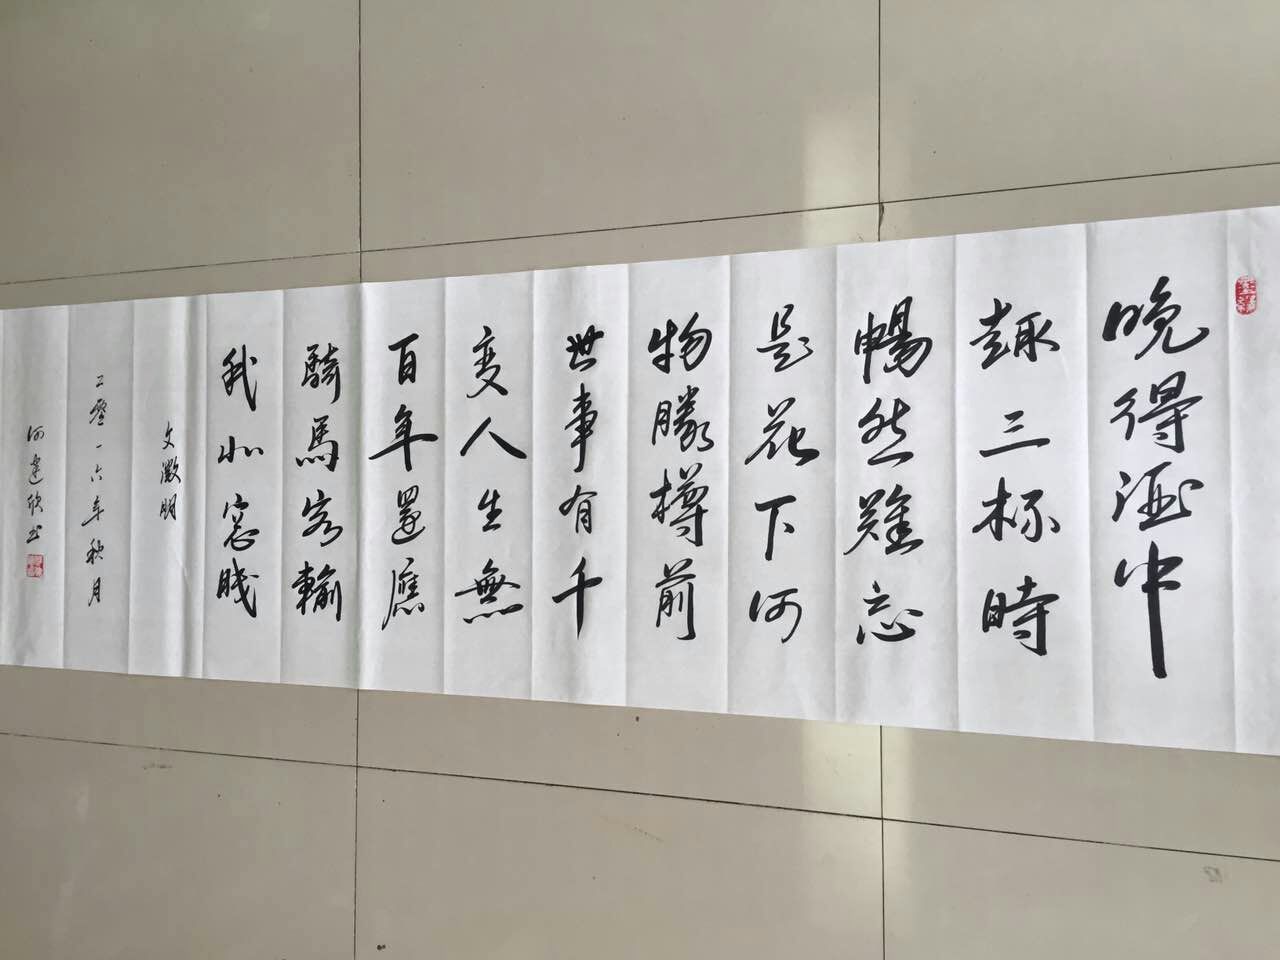 晚得酒中
趣三杯時
暢然難忘
是花下何
物勝樽前
世事有千
變人生無
百年還應
騎馬客輸
我北窓眠
文徵明
二零一六年秋月
何建欣书